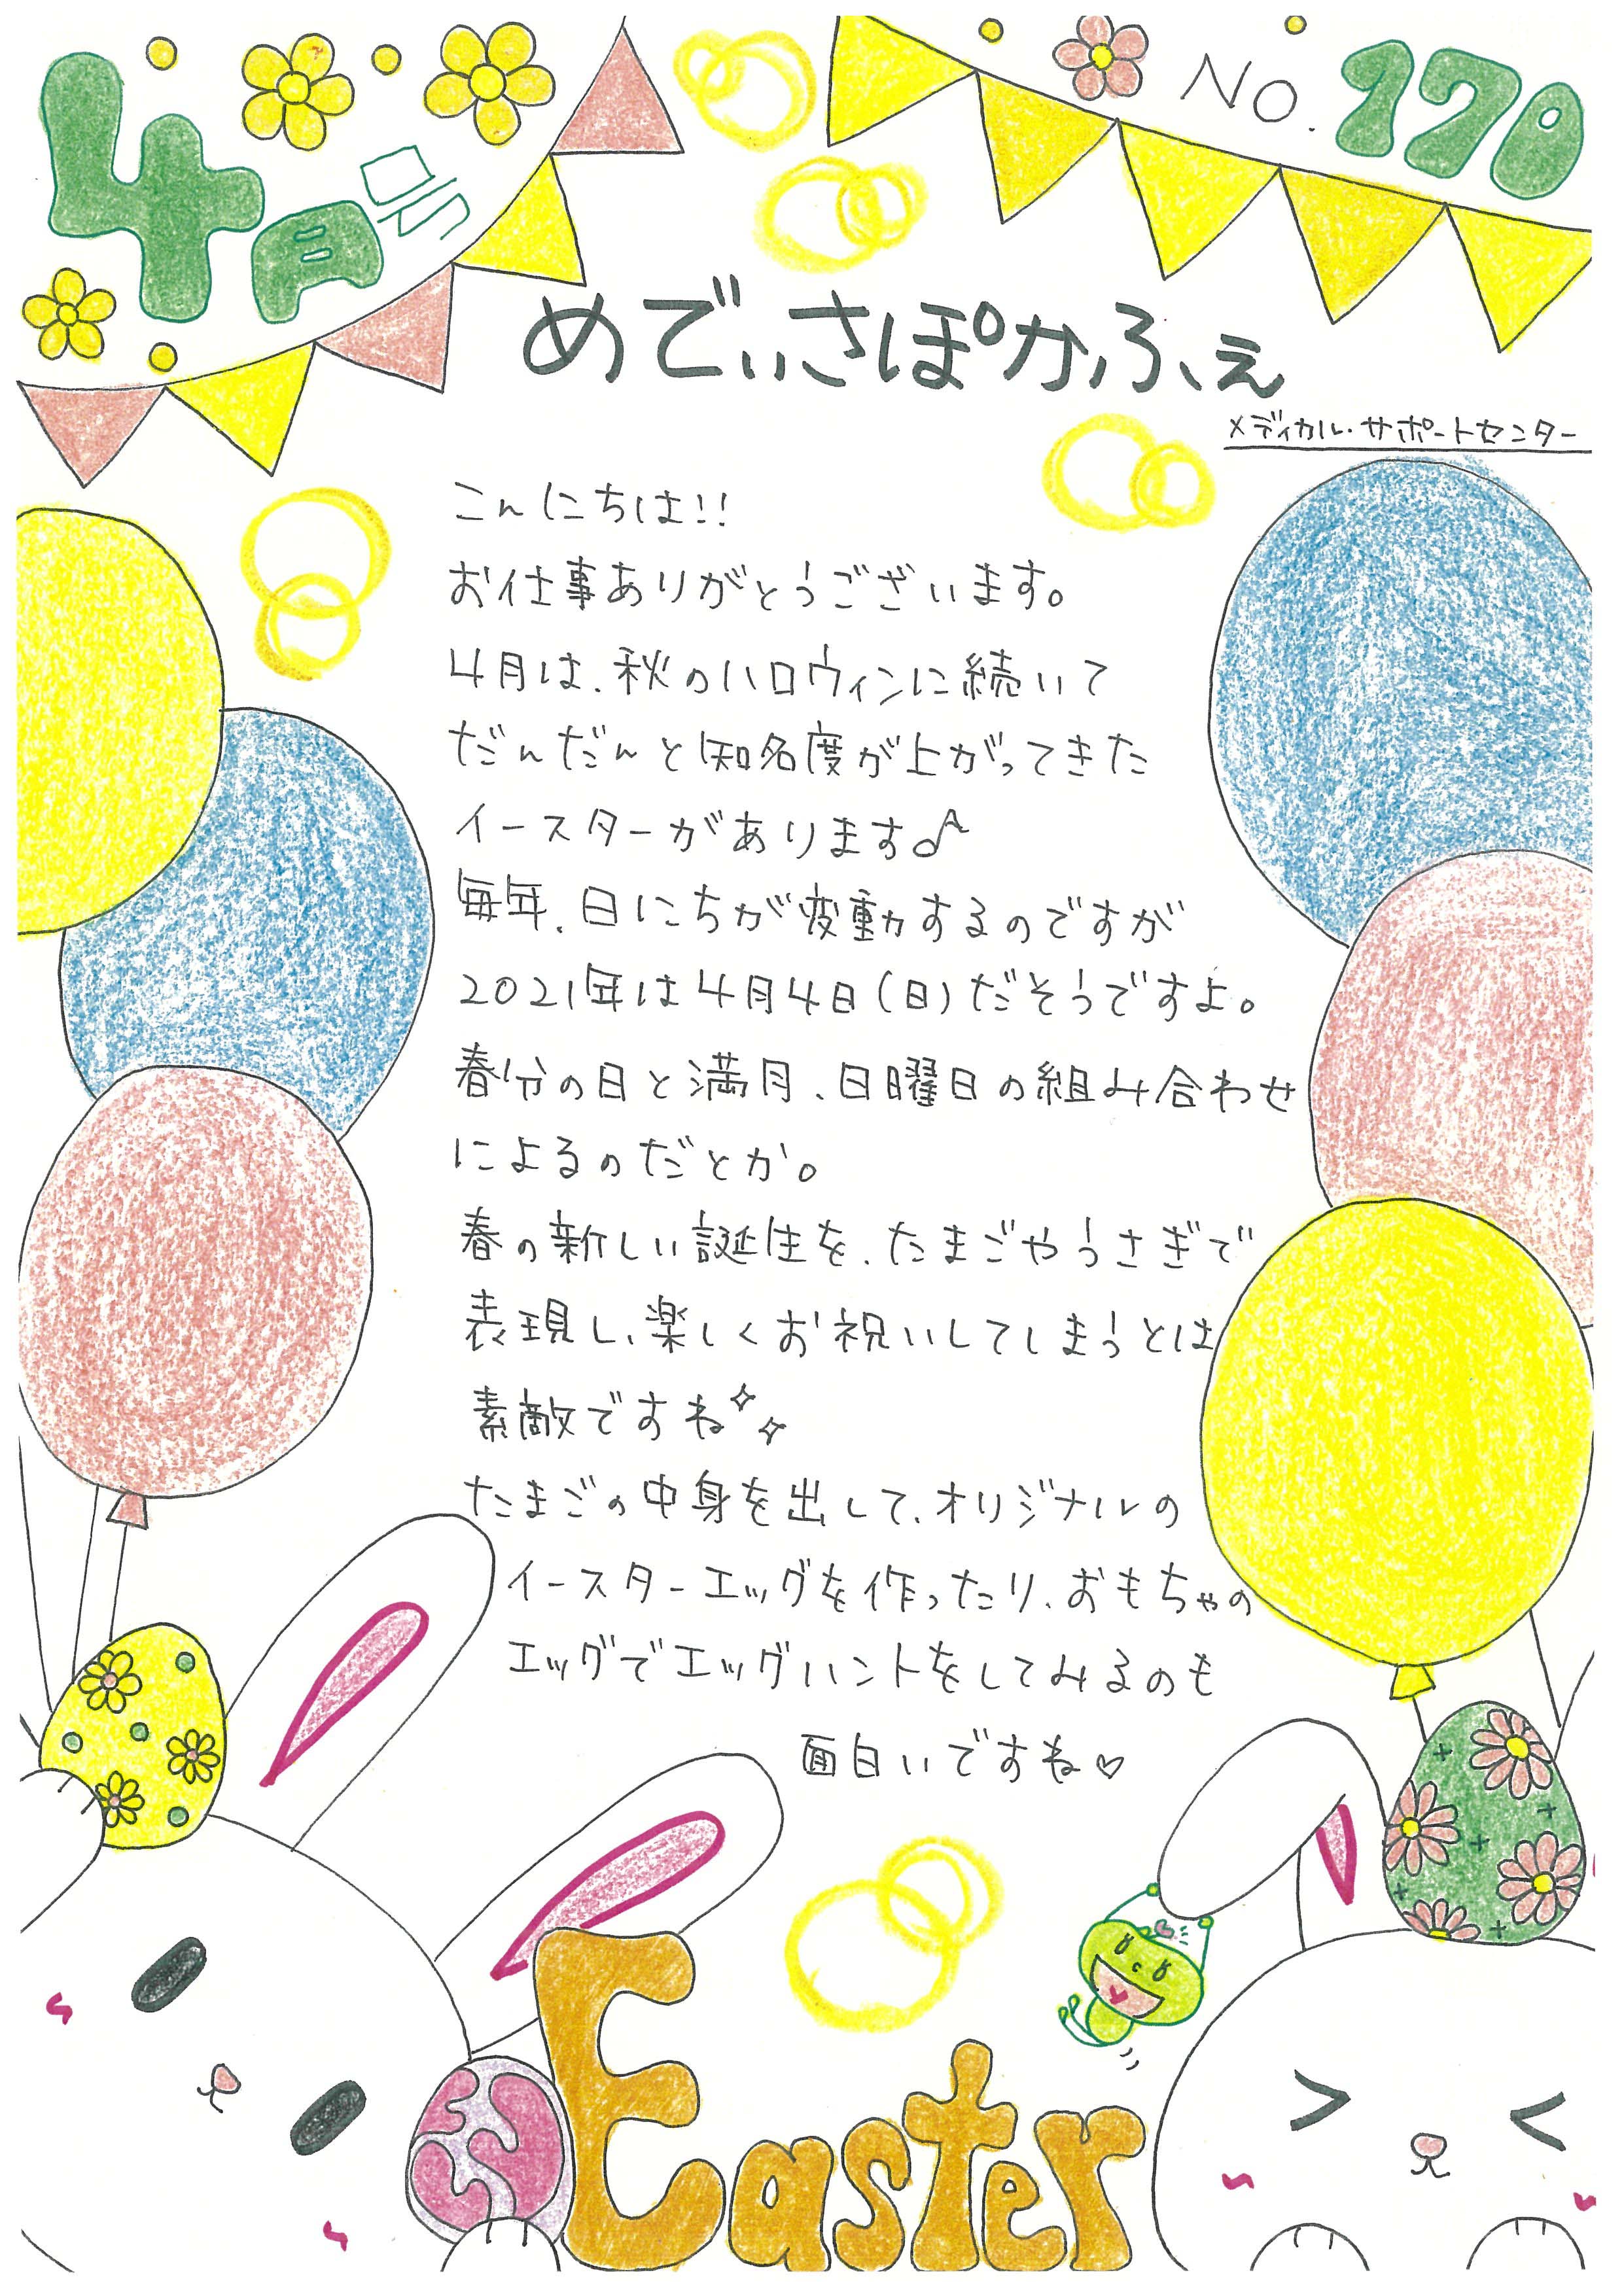 4月号
No.170
めでぃさぽかふぇ
メディカル・サポートセンター
こんにちは!!
お仕事ありがとうございます。
4月は、秋のハロウィンに続いて
だんだんと知名度が上がってきた
イースターがあります♪
毎年、日にちが変動するのですが
2021年は4月4日(日)だそうですよ。
春分の日と満月、日曜日の組み合わせ
によるのだとか。
春の新しい誕生を、たまごやうさぎで
表現し、楽しくお祝いしてしまうとは
素敵ですね
たまごの中身を出して、オリジナルの
イースターエッグを作ったり、おもちゃの
エッグでエッグハントをしてみるのも
面白いですね♡
Easter